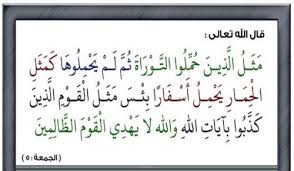 قال الله تعالى :
مَثَلُ الَّذِينَ حُمِّلُوا التَّوْرَاةَ ثُمَّ لَمْ يَحْمِلُوهَا كَمَثَلِ
الْحِمَارِ يَحْمِلُ أَسْفَارًا بِئْسَ مَثَلُ الْقَوْمِ الَّذِينَ
كَذَّبُوا بِآيَاتِ اللَّهِ وَاللَّهُ لا يَهْدِي الْقَوْمَ الظَّالِمِينَ
(الجمعة:٥)